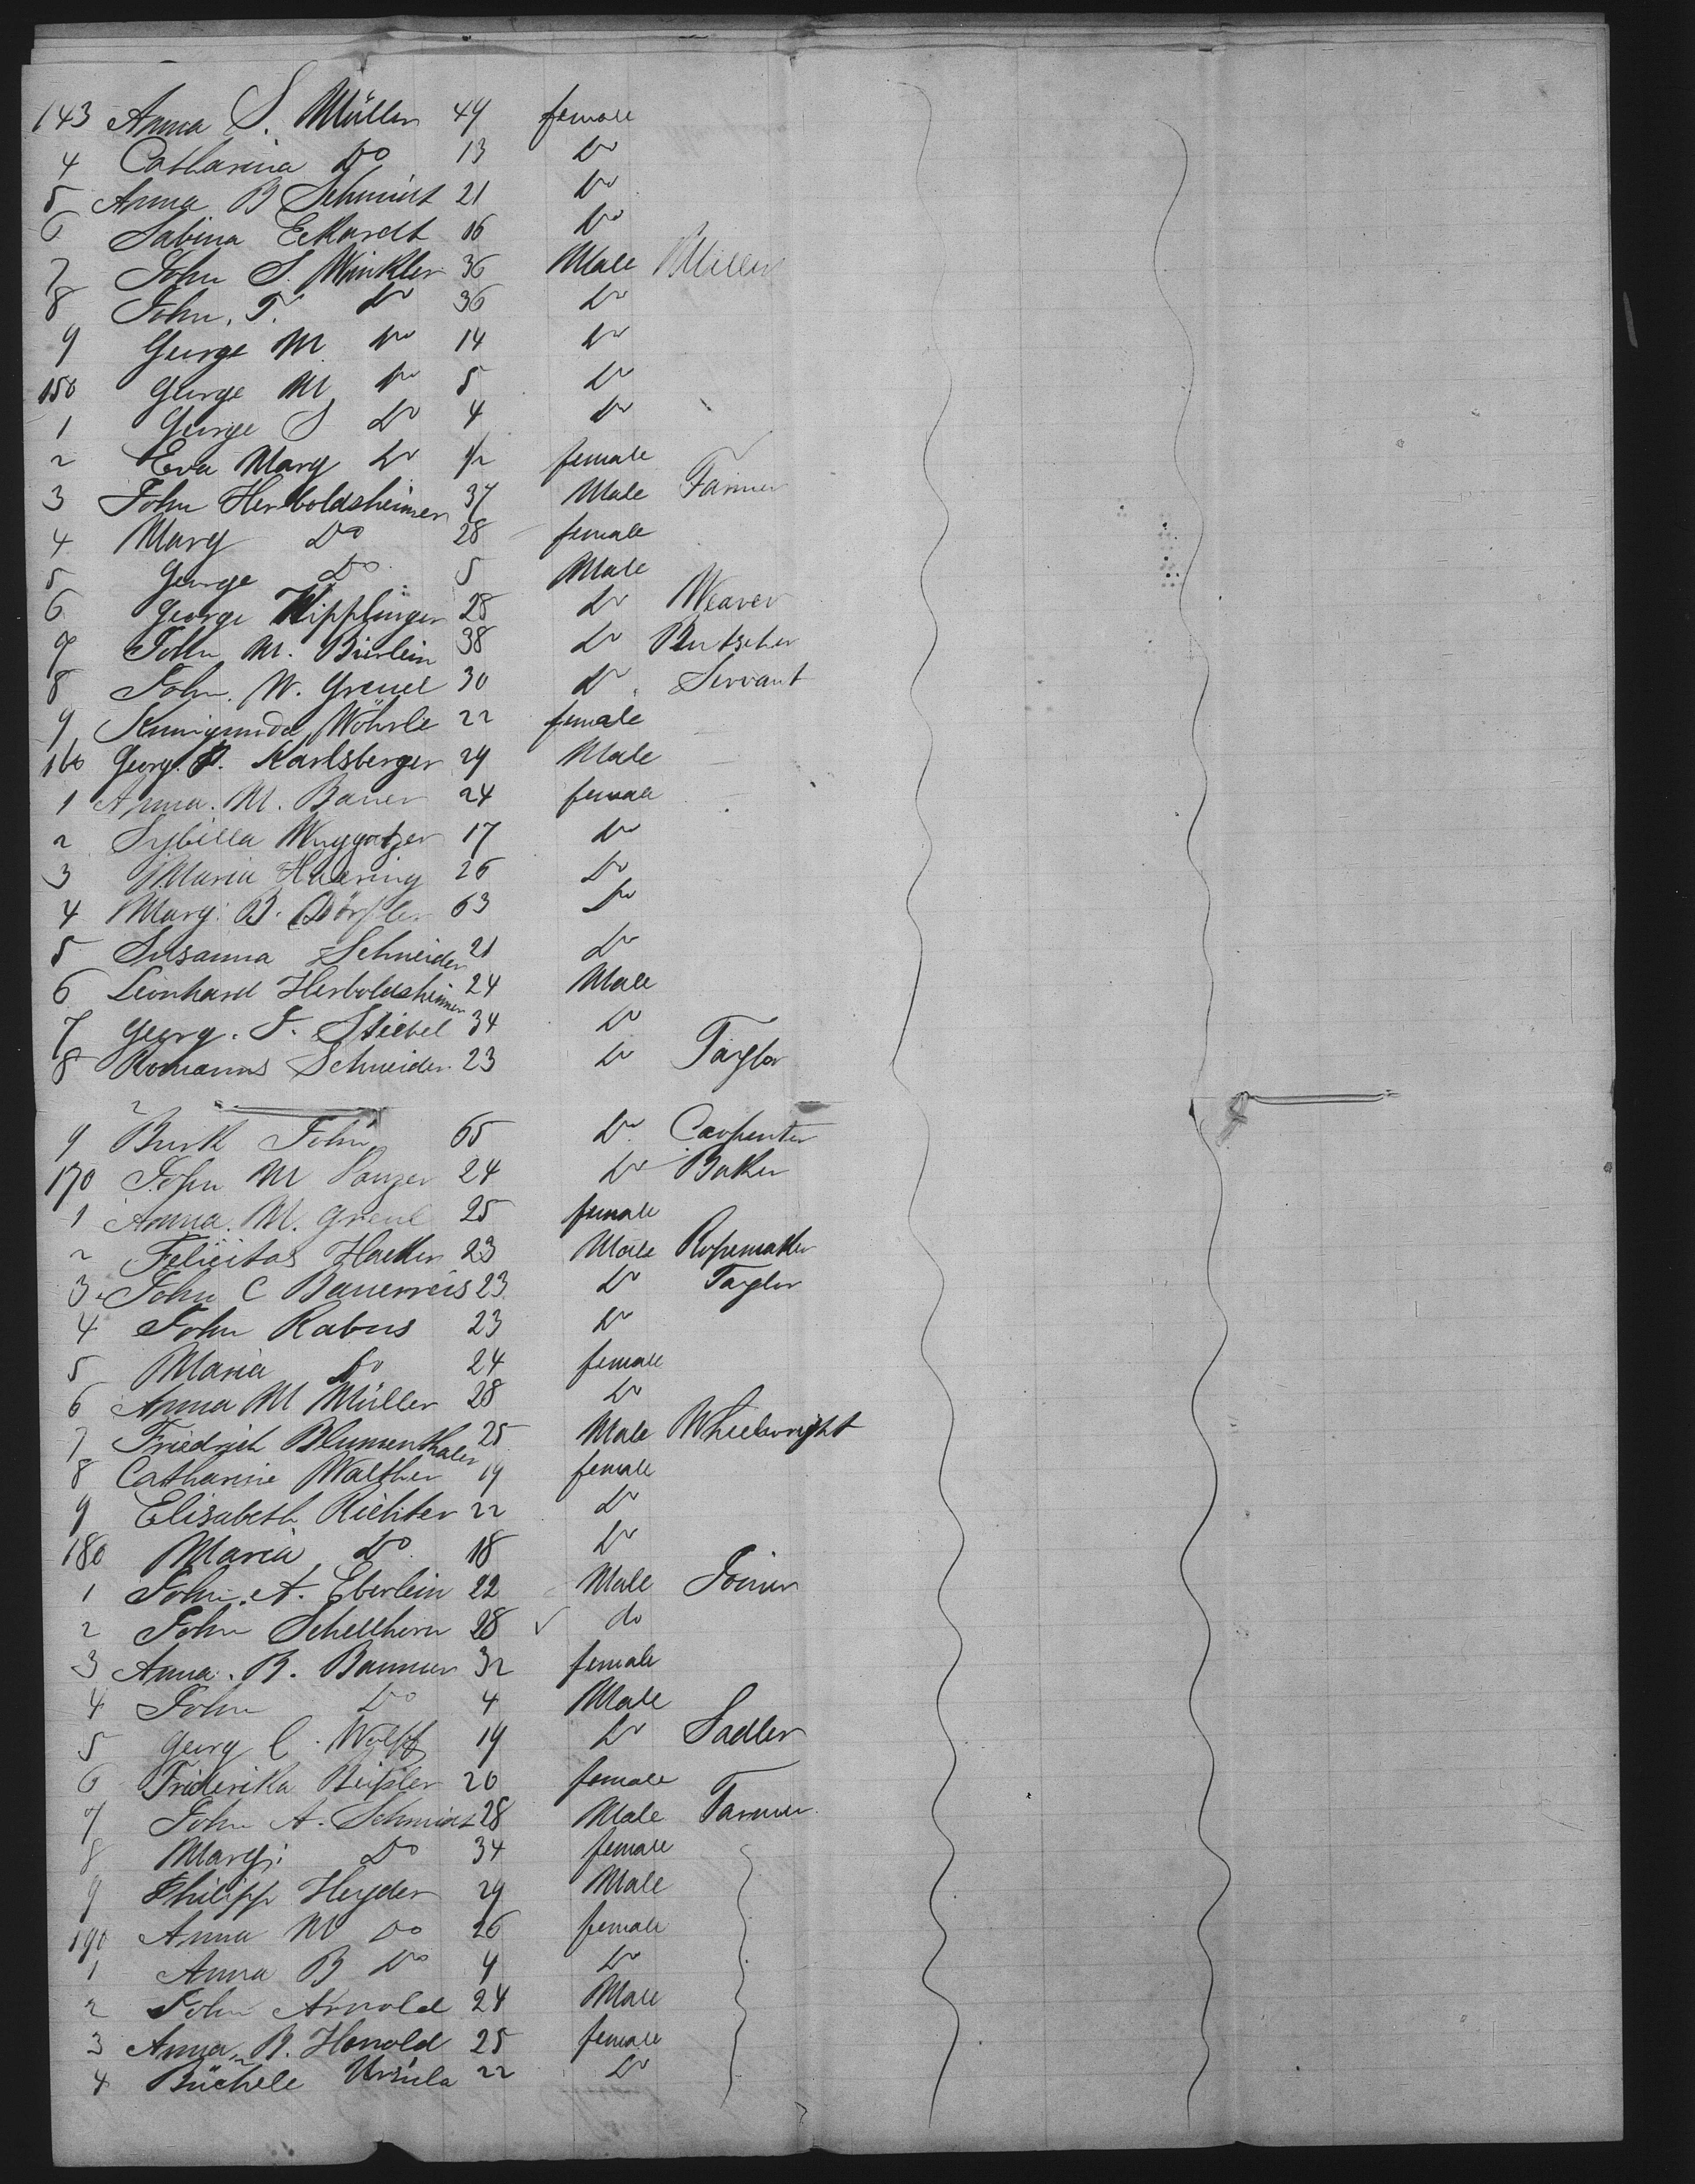 143 Anna S. Müller 49 female
4 Catharina Do 13 Do
5 Anna B Schmidt 21 Do
6 Sabina Eckardt 16 Do
7 John S. Winkler 36 Male Miller
8 John. T. Do 36 Do
9 George M. Do 14 Do
150 George M Do 5 Do
1 George S Do 4 Do
2 Eva Mary Do 1/2 female
3 John Herboldsheimer 37 Male Farmer
4 Mary Do 28 female
5 George Do 5 Male
6 George Kipplinger 28 Do Weaver
7 John M. Bierlein 38 Do Butscher
8 John. W. Greuel 30 Do Servant
9 Kunigunda Wöhrle 22 female
160 Georg. P. Karlsberger 29 Male
1 Anna. M. Bauer 24 female
2 Sybilla 17 Do
3 Maria 26 Do
4 Marg: B. Dörfler 63 Do
5 Susanna Schneider 21 Do
6 Leonhard Herboldsheimer 24 Male
7 Georg. F. Stiebel 34 Do
8 Romanus Schneider 23 Do Taylor
9 Burk John 65 Do Carpenter
170 John M Panzer 24 Do Baker
1 Anna. M. Greul 25 female
2 Felicitas Hacker 23 Male Ropemaker
3 John C Bauerreis 23 Do Taylor
4 John Rabus 23 Do
5 Maria Do 24 female
6 Anna M Müller 28 Do
7 Friedrich Blumenthaler 25 Male Wheelwright
8 Catharine Walther 19 female
9 Elisabeth Richter 22 Do
180 Maria Do 18 Do
1 John. A. Eberlein 22 Male Joiner
2 John Schellhorn 28 do
3 Anna. B. Bammer 32 female
4 John Do 4 Male
5 Georg C. Wolff 19 Do Sadler
6 Friderika Beißler 20 female
7 John A. Schmidt 28 Male Farmer
8 Marg: Do 34 female
9 Philipp Heyder 29 Male
190 Anna M Do 26 female
1 Anna B Do 4 Do
2 John Arnold 24 Male
3 Anna B. Honold 25 female
4 Büchele Ursula 22 Do